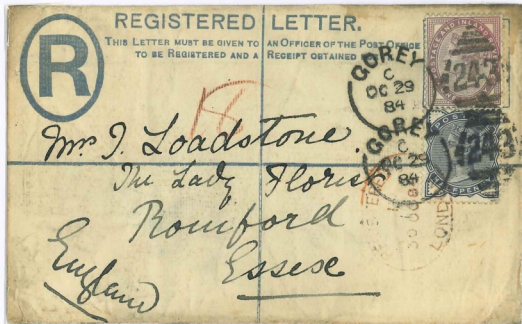 REGISTERED LETTER.
THIS LETTER MUST BE GIVEN TO AN OFFICER OF THE POST OFFICE
TO BE REGISTERED AND A RECEIPT OBTAINED
R
GOREY
C
OC 29
84
243
GOREY
C
OC 29
84
243
POST
LONDON
Mrs J. Loadstone.
The Lady Florist
Romford
Essex
England